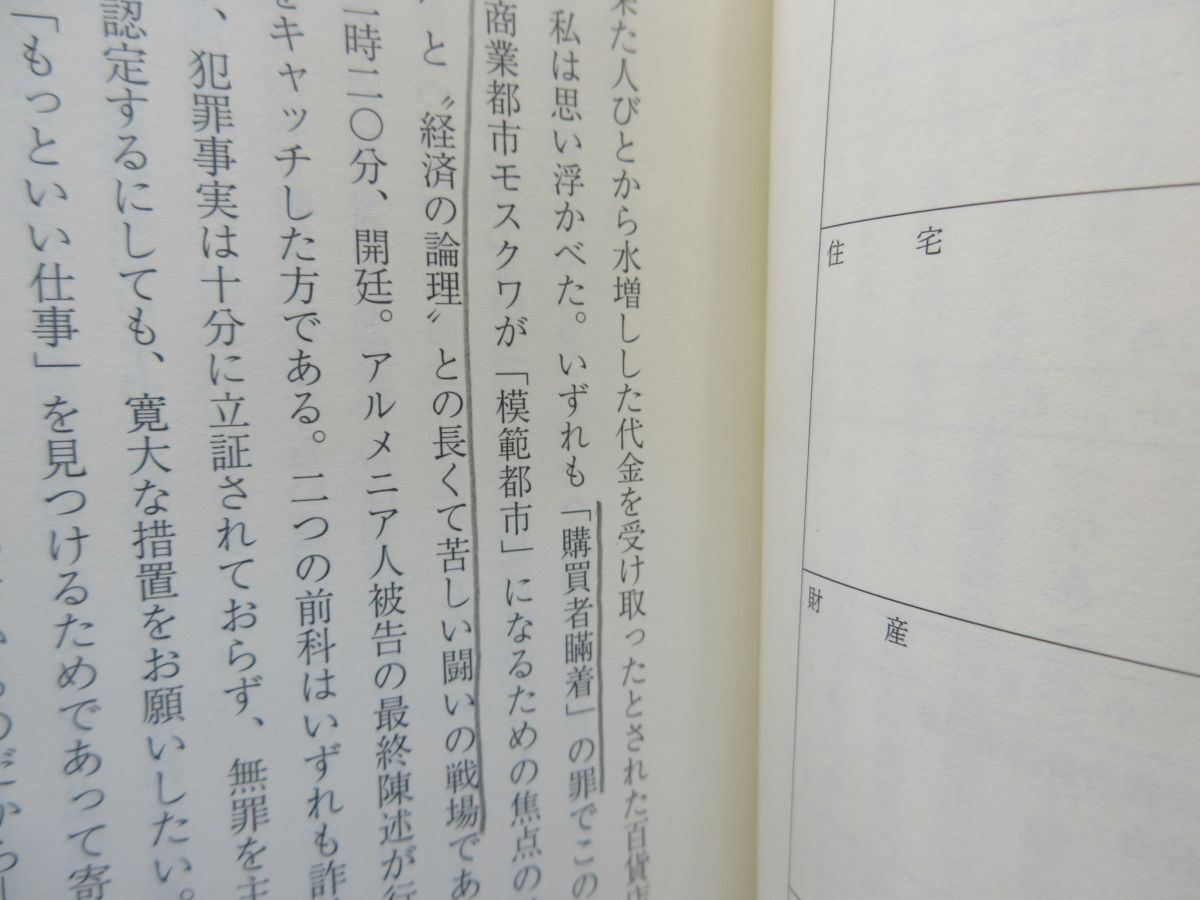 来た人びとから水増しした代金を受け取ったとされた百貨店
私は思い浮かべた。いずれも「購買者瞞着」の罪でこの
商業都市モスクワが「模範都市」になるための焦点の
と〝経済の論理〟との長くて苦しい闘いの戦場であ
一時二〇分、開廷。アルメニア人被告の最終陳述が行
をキャッチした方である。二つの前科はいずれも詐
、犯罪事実は十分に立証されておらず、無罪を主
認定するにしても、寛大な措置をお願いしたい。
「もっといい仕事」を見つけるためであって寄
住宅
財産